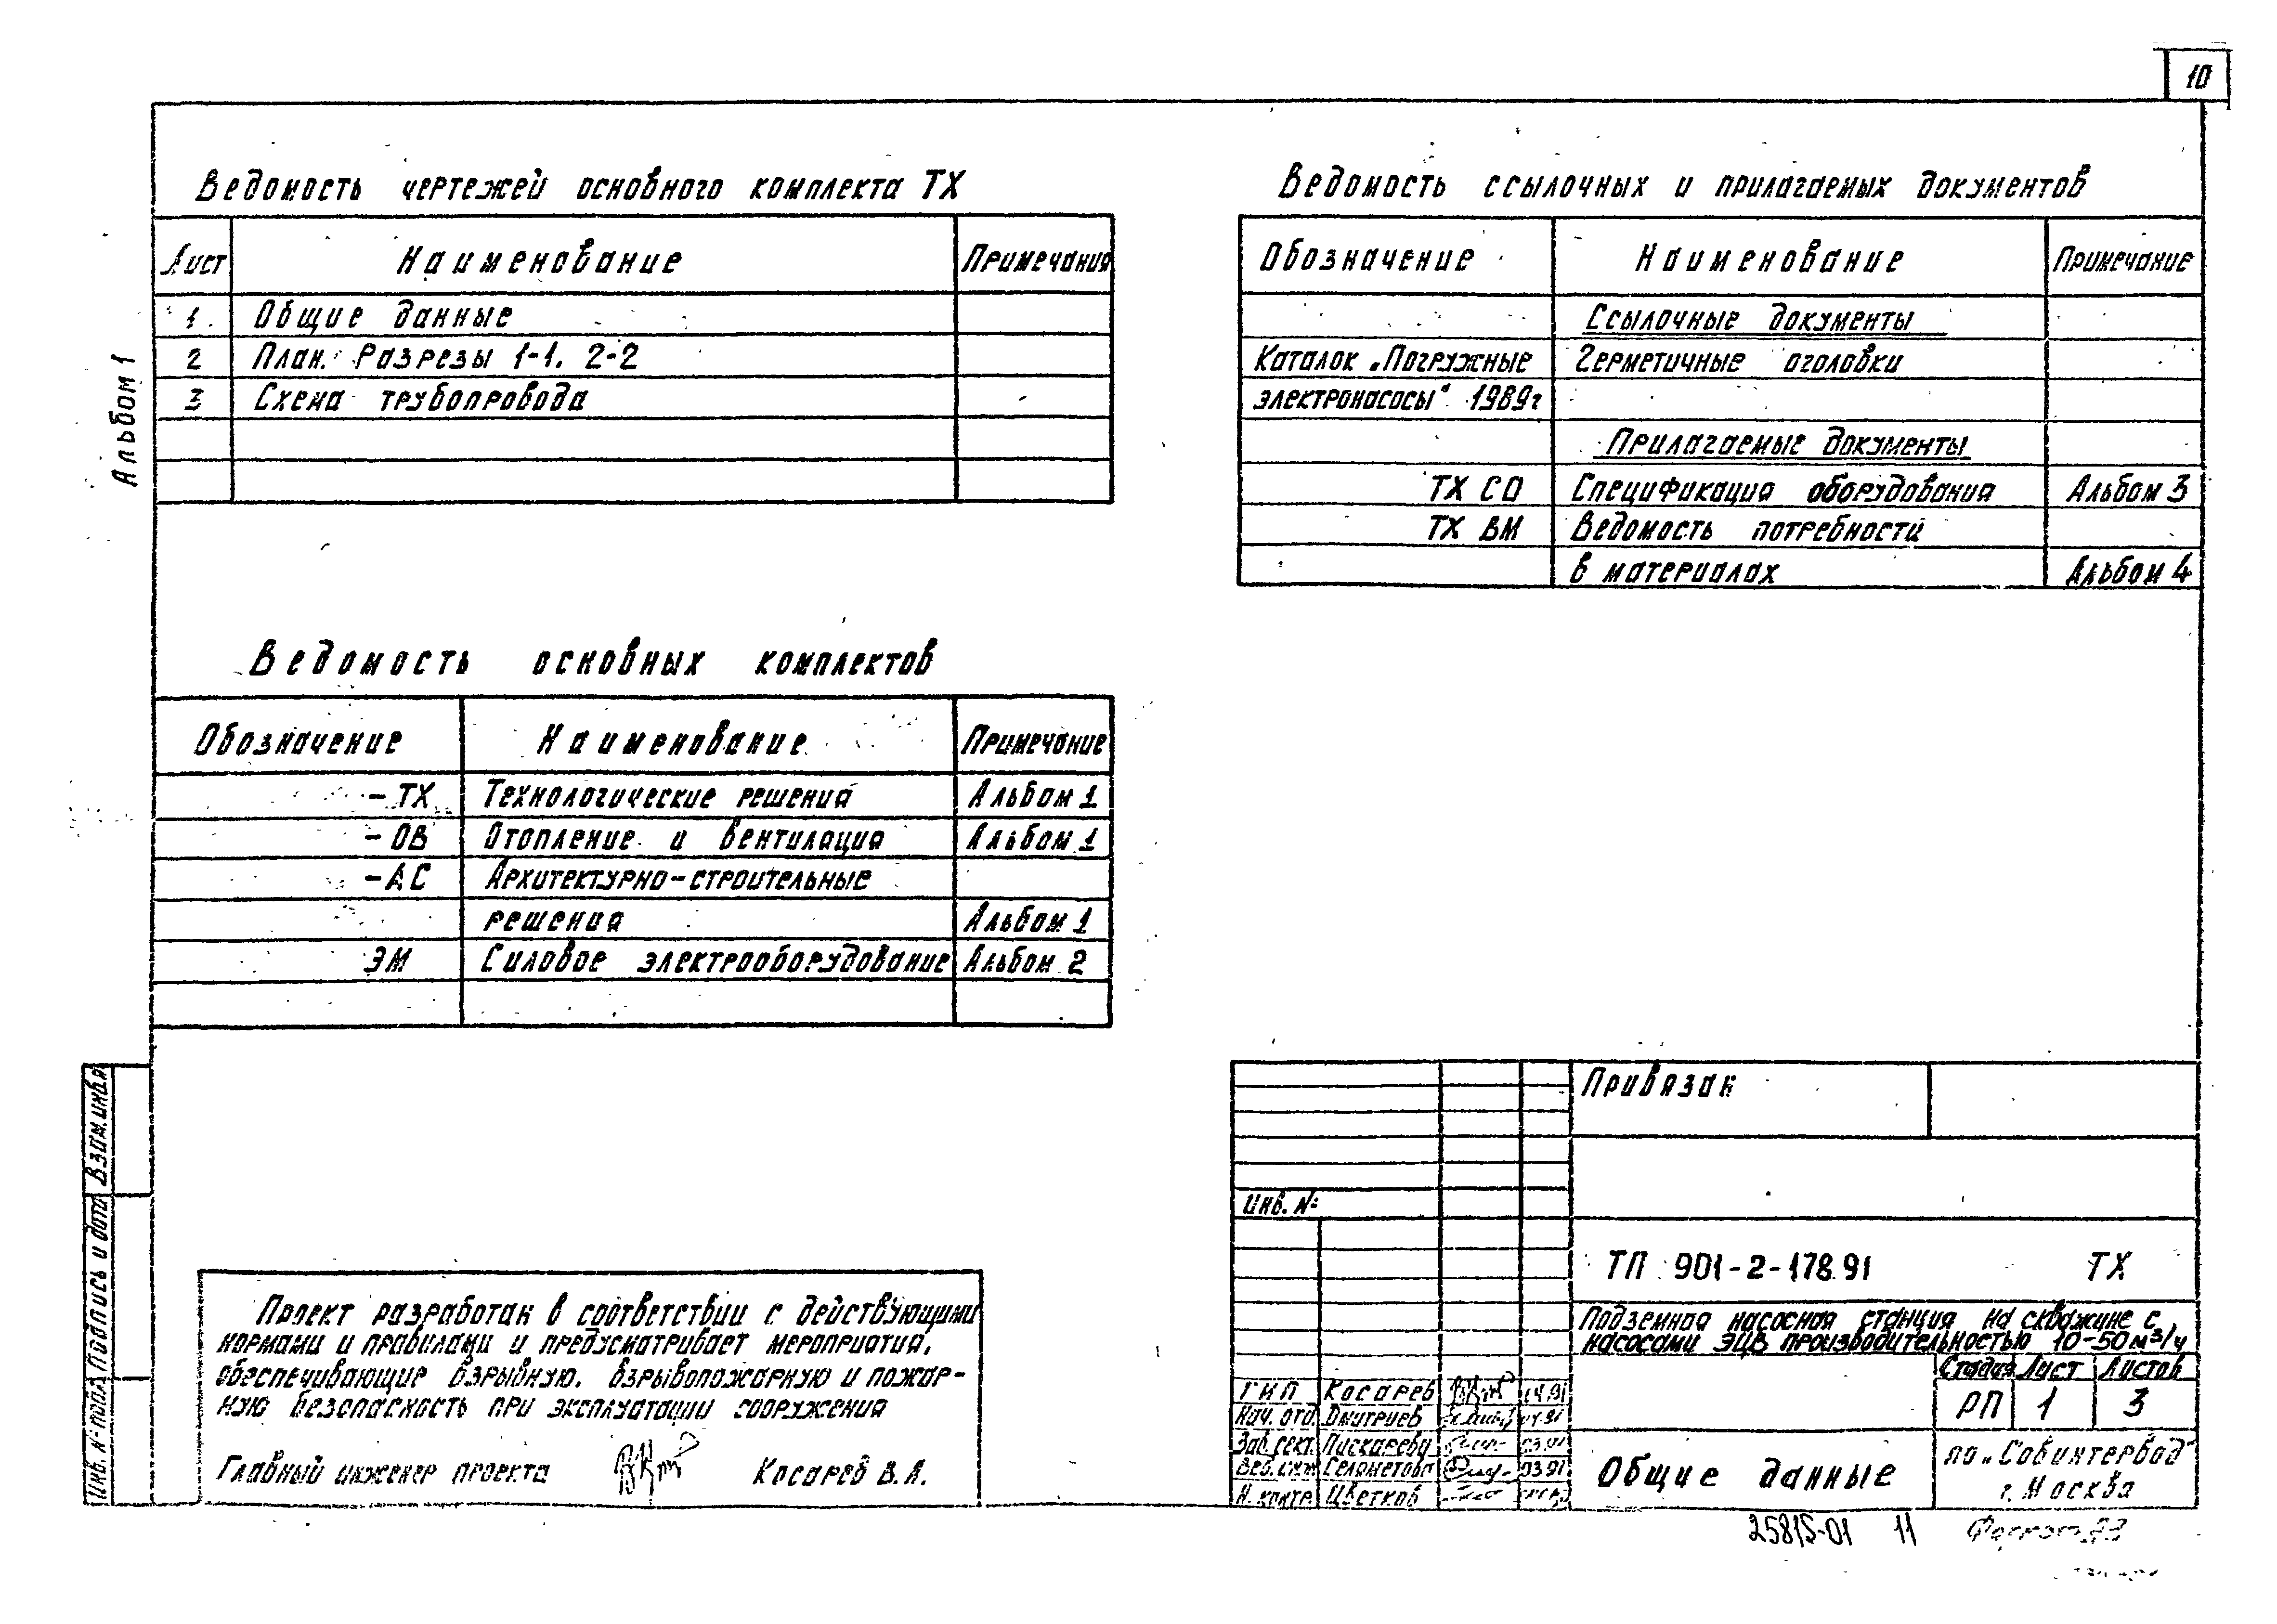 10
Альбом 1
Ведомость чертежей основного комплекта ТХ
Лист Наименование Примечания
1 Общие данные
2 План. Разрезы 1-1. 2-2
3 Схема трубопровода
Ведомость основных комплектов
Обозначение Наименование Примечание
-ТХ Технологические решения Альбом 1
-ОВ Отопление и вентиляция Альбом 1
-АС Архитектурно-строительные
решения Альбом 1
ЭМ Силовое электрооборудование Альбом 2
Ведомость ссылочных и прилагаемых документов
Обозначение Наименование Примечание
Ссылочные документы
Каталок „Погружные Герметичные оголовки
электронасосы" 1989г
Прилагаемые документы
ТХ СО Спецификация оборудования Альбом 3
ТХ ВМ Ведомость потребности
в материалах Альбом 4
Взам.инв.№
Подпись и дата
Инв. № подл.
Проект разработан в соответствии с действующими
нормами и правилами и предусматривает мероприятия,
обеспечивающие взрывную, взрывопожарную и пожар-
ную безопасность при эксплуатации сооружения
Главный инженер проекта Косарев В.А.
Привязан
Инв. №
ТП 901-2-178.91 ТХ
Подземная насосная станция на скважине с
насосами ЭЦВ производительностью 10-50 м³/ч
Стадия Лист Листов
РП 1 3
ГИП Косарев 04.91
Нач. отд. Дмитриев 04.91
Зав. сект. Пискарева 03.91
Вед. инж. 03.91
Н. контр. Цветков
Общие данные
по „Совинтервод"
г. Москва
25815-01 11 Формат А3